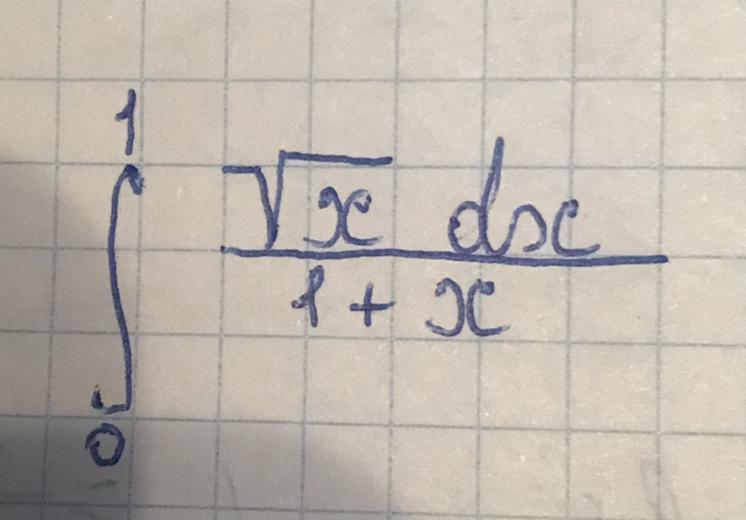 ∫₀¹ √x dx / (1 + x)